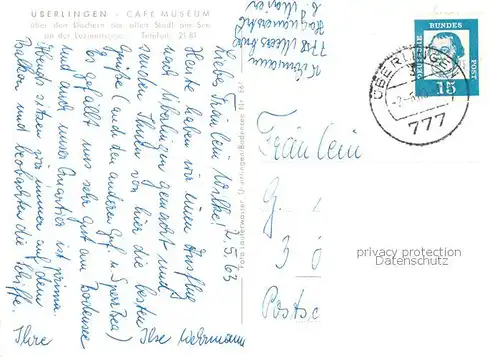 ÜBERLINGEN - CAFÉ MUSEUM
über den Dächern der alten Stadt am See
an der Luziengasse Telefon: 21 81
7.5.63
Liebe Fräulein Wilke!
Heute haben wir einen Ausflug
nach Überlingen gemacht und
senden Ihnen von hier die besten
Grüße (auch den anderen
Es gefällt uns sehr gut am Bodensee
und auch unser Quartier ist prima.
Abends sitzen wir immer auf dem
Balkon und beobachten die Schiffe.
Ihre Ilse Wehrmann
Foto Lauterwasser, Überlingen/Bodensee Nr. 661
Wehrmann
7758 Meersburg
DEUTSCHE
BUNDES
POST
15
ÜBERLINGEN
777
Fräulein
G
3 0
Postsc
privacy protection
Datenschutz